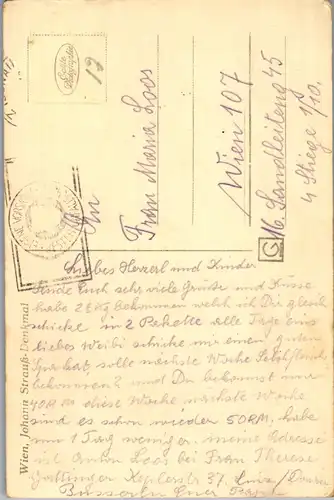 Echte Photographie
17
An
Frau Maria Loos
Wien 107
16. Sandleiteng 45
4 Stiege 1/10.
G
Liebes Herzerl und Kinder
Sende Euch sehr viele Grüsse und Küsse
habe 2 Kg bekommen welch ich Dir gleich
schicke in 2 Pakette alle Tage eins
liebes Weibi schicke mir einen guten
solle nächste Woche
bekommen? und Du bekommst nur
40 RM diese Woche nächste Woche
sind es schon wieder 50 RM, habe
nur 1 Tag weniger. meine Adresse
ist Anton Loos bei Frau Therese
Keplerstr 37. Linz/Donau
Busserln Euer
Wien, Johann Strauß-Denkmal